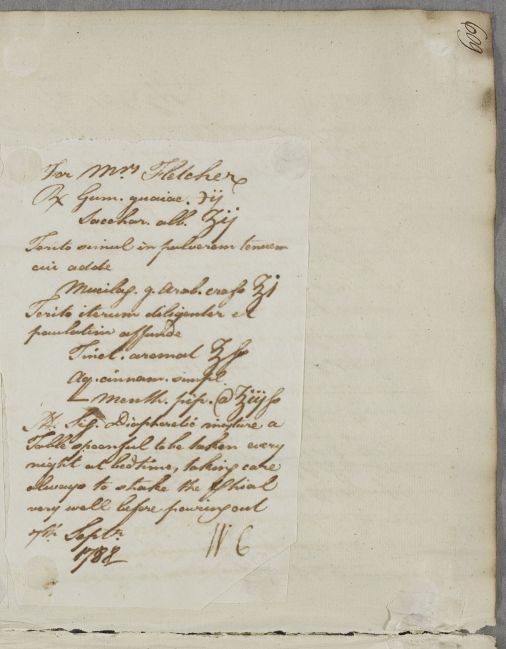 609
For Mrs Fletcher
℞ Gum. guaiac. ʒij
Sacchar. alb. ʒij
Terito simul in pulverem tenuem
cui adde
Mucilag. g. Arab. crass ʒj
Terito iterum diligenter et
paulatim affunde
Tinct. aromat ʒss
Aq. cinnam. simpl
— Menth. pip. @ ʒiijss
M. Sig. Diaphoretic mixture a
Table spoonful to be taken every
night at bedtime, taking care
always to shake the Phial
very well before pouring out
7th. Septr
1782
W C